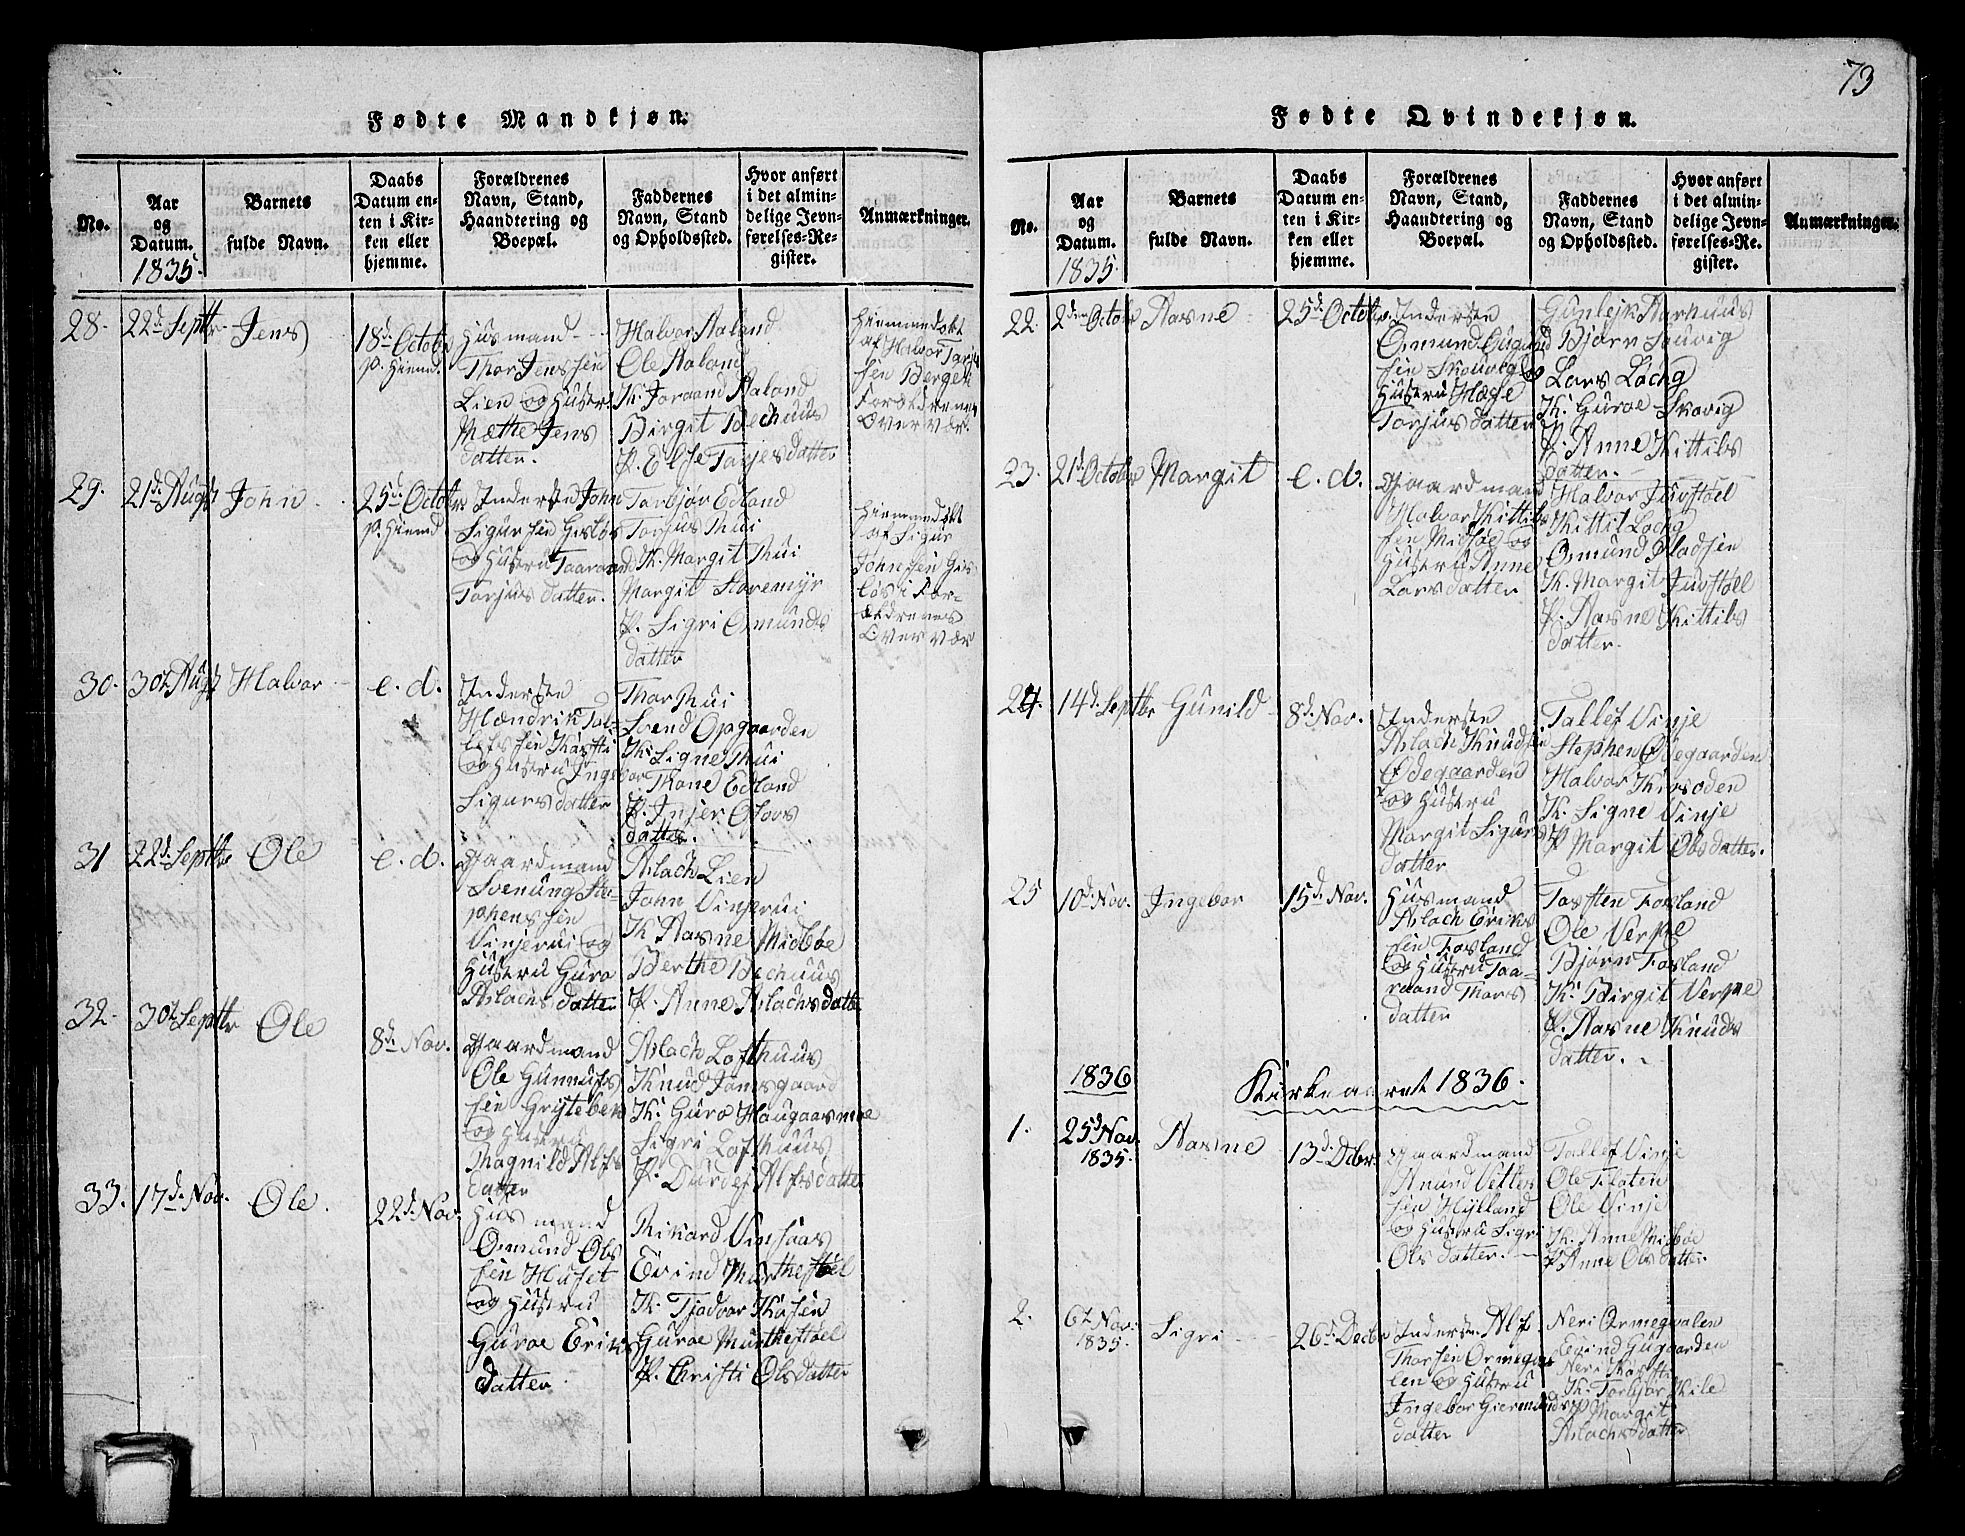 73
Fødte Mandkjøn.
No.
Aar
og
Datum.
1835.
Barnets
fulde Navn.
Daabs
Datum en-
ten i Kir-
ken eller
hjemme.
Forældrenes
Navn, Stand,
Haandtering og
Boepæl.
Faddernes
Navn, Stand
og Opholdssted.
Hvor anført
i det almin-
delige Jevn-
førelses-Re-
gister.
Anmærkninger.
28. 22d Septbr Jens
18d October
p. Hiemd.
Husmand
Thor Jenssen
Lien og Hustr.
Mæthe Jens
datter.
Halvor Aaland
Ole Aaland
K. Joraand Aaland
Birgit Bechuus
P. Else Tarjesdatter
Hiemmedøbt
af Halvor Tarje
sen Berge i
Forældrenes
Overvær.
29. 21d Augst John
25d Octobr
p. Hiemd
Inderste John
Sigursen
og Hustru Taaraand
Torjusdatter.
Tarbjør Edland
Torjus Rui
K. Margit Rui
Margit Storemyr
P. Sigri Osmunds
datter
Hiemmedøbt
af Sigur
Johnsen
i For-
ældrenes
Overvær
30. 30t Augst Halvor e. d.
Inderste
Hændrik Tal-
lefssen
og Hustru Ingebor
Sigursdatter
Thor Rui
Svend Opgaarden
K. Signe Rui
Thone Edland
P. Injer Olavs
datter.
31 22d Septbr Ole e. d.
Gaardmand
Svenung Ste-
phenssen
Vinjerui og
Hustru Guro
Aslachsdatter
Aslach Lien
John Vinjerui
K. Aasne Midbøe
Berthe Bechuus
P. Anne Aslachsdatter
32. 30t Septbr Ole
8d Nov.
Gaardmand
Ole Gunnufs
sen Gryteberg
og Hustru
Magnild Alfs
datter
Aslach Lofthuus
Knud Jamsgaard
K. Guro Haugaasmoe
Sigri Lofthuus
P. Durdei Alfsdatter
33. 17d Nov. Ole.
22d Nov.
Husmand
Osmund Ols
sen Huset
og Hustru
Guroe Eriks
datter
Rikard Vinsaas
Eivind Murthestøel
K. Tjodvor Kaasen
Guroe Murthestøel
P. Christi Olsdatter
Fødte Qvindekjøn.
No.
Aar
og
Datum.
1835.
Barnets
fulde Navn.
Daabs
Datum en-
ten i Kir-
ken eller
hjemme.
Forældrenes
Navn, Stand,
Haandtering og
Boepæl.
Faddernes
Navn, Stand
og Opholdssted.
Hvor anført
i det almin-
delige Jevn-
førelses-Re.
gister.
Anmærkninger.
22. 2den October Aasne
25d October
Inderste
Osmund
sen Skouvig og
Hustru Hæge
Torjusdatter
Gunlejk Aarhuus
Bjørn Schuvig
Lars Lochg
K. Guroe Skovig
P. Anne Kittils
datter.
23. 21d October Margit e. d.
Gaardmand
Halvor Kittils
sen Midbøe og
Hustru Anne
Larsdatter
Halvor Juvstøel
Kittil Lochg
Osmund Pladsen
K. Margit Juvstøel
P. Aasne Kittils
datter.
24. 14d Septbr Gunild
8d Nov.
Inderste
Aslach Knudsen
Ødegaarden
og Hustru
Margit Sigurs
datter
Tallef Vinje
Stephen Ødegaarden
Halvor Kirsoden
K. Signe Vinje
P Margit Olsdatter.
25 10d Nov. Ingebor
15d Nov.
Husmand
Aslach Eriks
sen Fosland
og Hustru Taa-
raand Thors
datter
Torsten Fosland
Ole Verpe
Bjørn Fosland
K. Birgit Verpe
P. Aasne Knuds
datter.
1836
Kirkeaaret 1836.
1. 25d Nov.
1835. Aasne
13d Dcbr.
Gaardmand
Anund Vetles
sen Hylland
og Hustru Sigri
Olsdatter.
Tallef Vinje
Ole Floten
Ole Vinje
K. Anne Midbøe
P Anne Olsdatter
2. 6t Nov.
1835. Sigri
26d Decbr
Inderste Alf
Thorsen Ormegva
len og Hustru
Ingebor
datter
Neri Ormegvalen
Eivind Gugaarden
Neri
K. Torbjør Kile
P Margit
Aslachsdatter